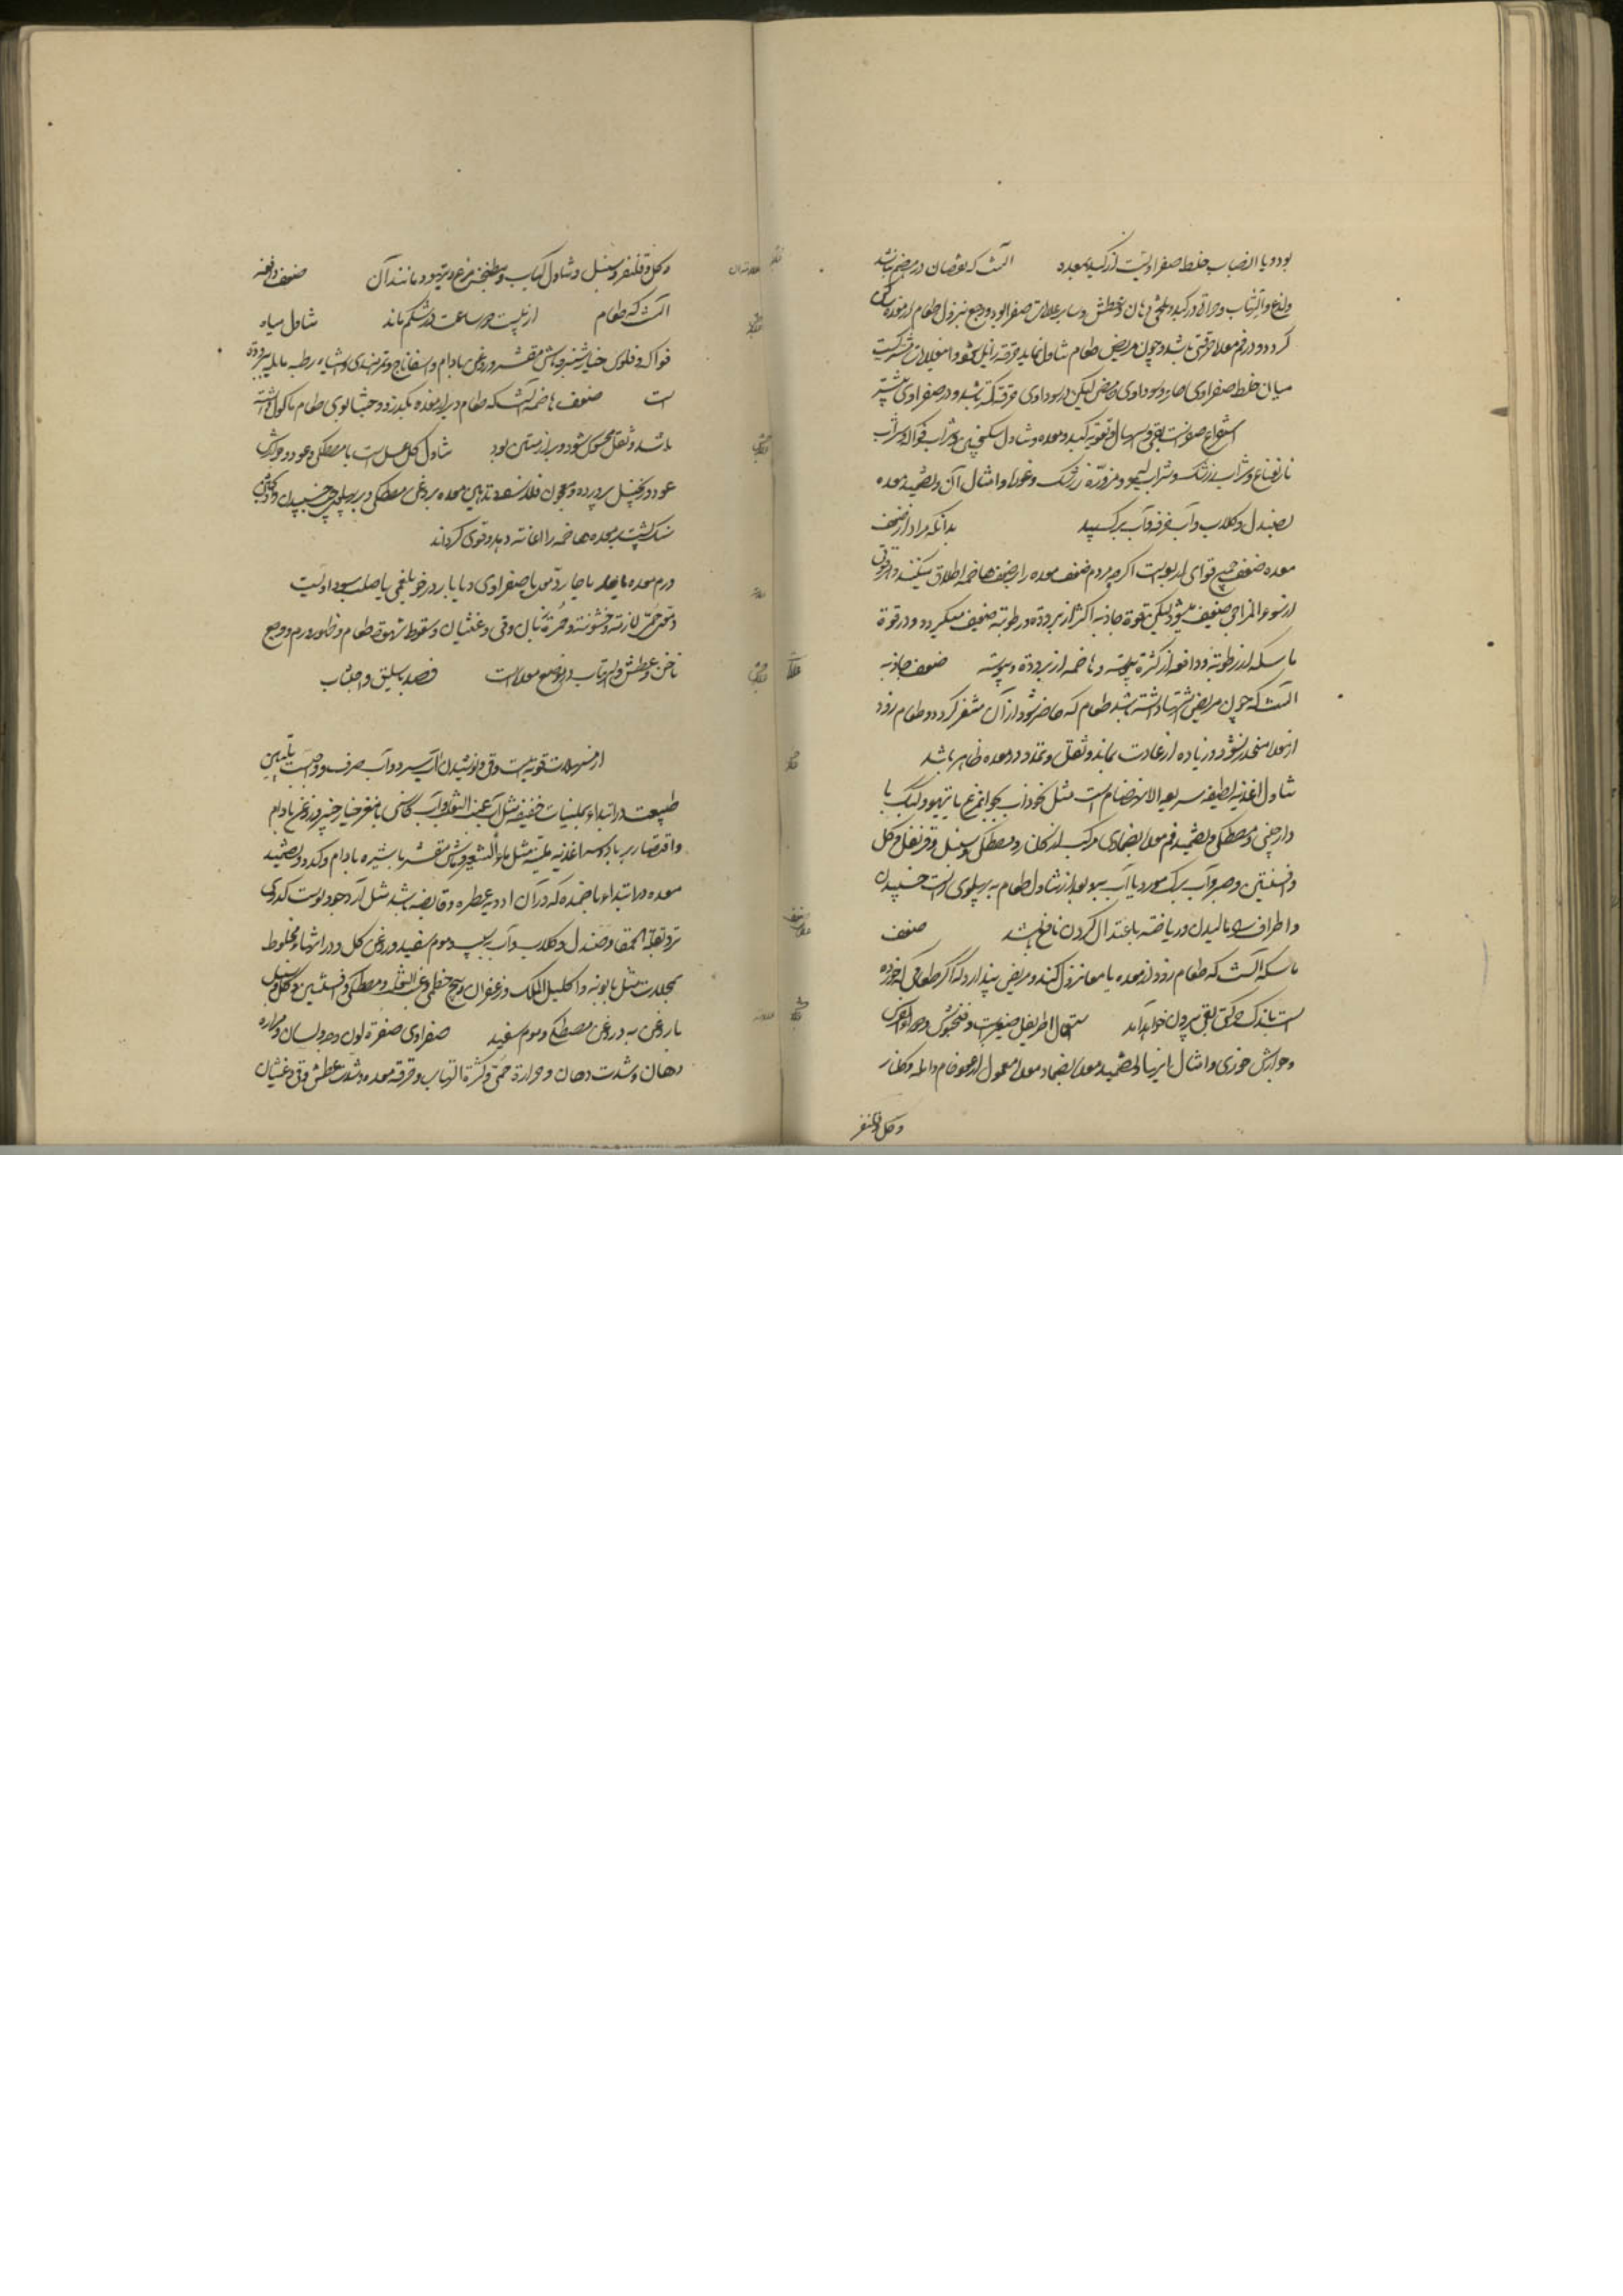 بود و یا انصباب خلط صفراویست از کبد بمعده آنست که نقصان در هضم باشد
ولذع و التهاب و حرارة در کبد و تلخی دهان و عطش و سایر علامات صفرا بود و وجع بنزول طعام از معده ساکن
کردد و در فم معده حرقتی باشد و چون مریض طعام تناول نماید حرقه زایل شود و این علامات مشترکست
میان خلط صفراوی حار و سوداوی حامض لیکن در سوداوی حرقة کمتر باشد و در صفراوی بیشتر
استفراغ صفراست بقی و اسهال و تقویة کبد و معده و تناول سکنجبین و شراب فواکه و شراب
نارنعناع و شراب زرشک و شراب لیمو و مزوره زرشک و غوره و امثال آن و تضمید معده
بصندل و کلاب و آب خرفه و آب برک بید بدانکه مراد از ضعف
معده ضعف جمیع قوای اربعه است اکرچه مردم ضعف معده را بر ضعف هاضمه اطلاق میکنند و هر قوتی
از سوء المزاجی ضعیف میشود لیکن قوة جاذبه اکثر از برودة و رطوبة ضعیف میکردد و در قوة
ماسکه از رطوبة و دافعه از کثرة یبوسة و هاضمه از برودة و یبوسة ضعف جاذبه
آنست که چون مریض اشتها داشته باشد طعام که حاضر شود از آن متنفر کردد و طعام زود
از معده منحدر نشود و زیاده از عادت بماند و ثقل و تمدد در معده ظاهر باشد
تناول اغذیه لطیفه سریع الانهضام است مثل نخودآب بجوجه مرغ یا تیهو و کبک با
دارچینی و مصطکی و تضمید فم معده بضمادی مرکب از کلنار و مصطکی و سنبل و قرنفل و کل
و افسنتین و صبر و آب برک مورد یا آب به و بعد از تناول طعام بر پهلوی راست خسپیدن
و اطراف را مالیدن و ریاضة باعتدال کردن نافع باشد ضعف
ماسکه آنست که طعام زود از معده بامعا نزول کند و مریض پندارد که اکر طعامی که خورده
است باندک حرکتی بقی بیرون خواهد آمد استعمال اطریفل صغیر است و فنجنوش و جوارش
و جوارش خوزی و امثال اینها و تضمید معده بضماد معمول از عود خام و لادن و کلنار
و کل و قرنفر
و کل و قرنفر و سنبل و تناول کباب و مطنجن مرغ و تیهو و مانند آن ضعف دافعه
آنست که طعام از بیست و چهار ساعت در شکم ماند تناول میاه
فواکه و فلوس خیارشنبر و ماش مقشر و روغن بادام و اسفاناخ و تمرهندی و اشیاء رطبه مایله ببرودة
است ضعف هاضمه آنست که طعام دیر از معده بکذرد و جشا بوی طعام ماکول داشته
باشد و ثقل محسوس شود و براز منتن بود تناول کلعسل است با مصطکی و عود و جوارش
عود و زنجبیل پرورده و معجون فلاسفه و تدهین معده بروغن مصطکی و بر پهلوی چپ خسپیدن و
سنک پشت بمعده هاضمه را اعانة دهد و قوی کرداند
ورم معده یا حار دموی یا صفراوی و یا بارد رخو بلغمی یا صلب سوداویست
و تبش حمی لازمه و خشونة و حمرة زبان و قی و غثیان و سقوط شهوة طعام و ظهور ورم و وجع
ناخس و عطش و التهاب در موضع معده است فصد باسلیق و اجتناب
از مسهلات قویه است و قی و نوشیدن آب سرد و آب صرف و واجبست تلیین
طبیعت در ابتداء بملینات خفیفه مثل آب عنب الثعلب و آب کاسنی با مغز خیارشنبر و روغن بادام
و اقتصار بر اغذیه ملینه مثل ماء الشعیر و ماش مقشر با شیره بادام و کدو و تضمید
معده در ابتداء باضمده که در آن ادویه عطره و قابضه باشد مثل آرد جو و پوست کدوی
تر و بقلة الحمقا و صندل و کلاب و آب سیب و موم سفید و روغن کل و در انتها مخلوط
بمحللات مثل بابونه و اکلیل الملک و زعفران و بیخ خطمی و عنب الثعلب و مصطکی و افسنتین و کل و سنبل
با روغن به و روغن مصطکی و موم سفید صفراوی صفرة لون وجه و لسان و مرارة
دهان و شدت دهان و حرارة حمی و کثرة التهاب و حرقة معده و شدت عطش و قی و غثیان